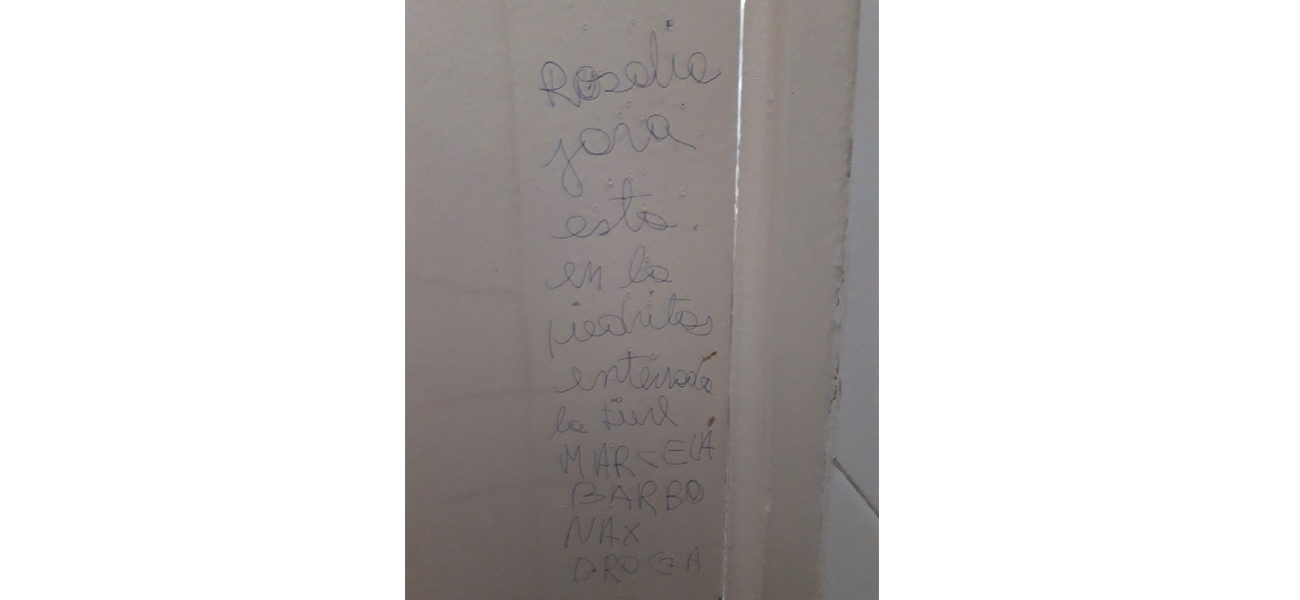 Rosalia
jara
esta
en la
piedritas
enterrada
la tiene
MARCELA
BARBO
NAX
DROGA